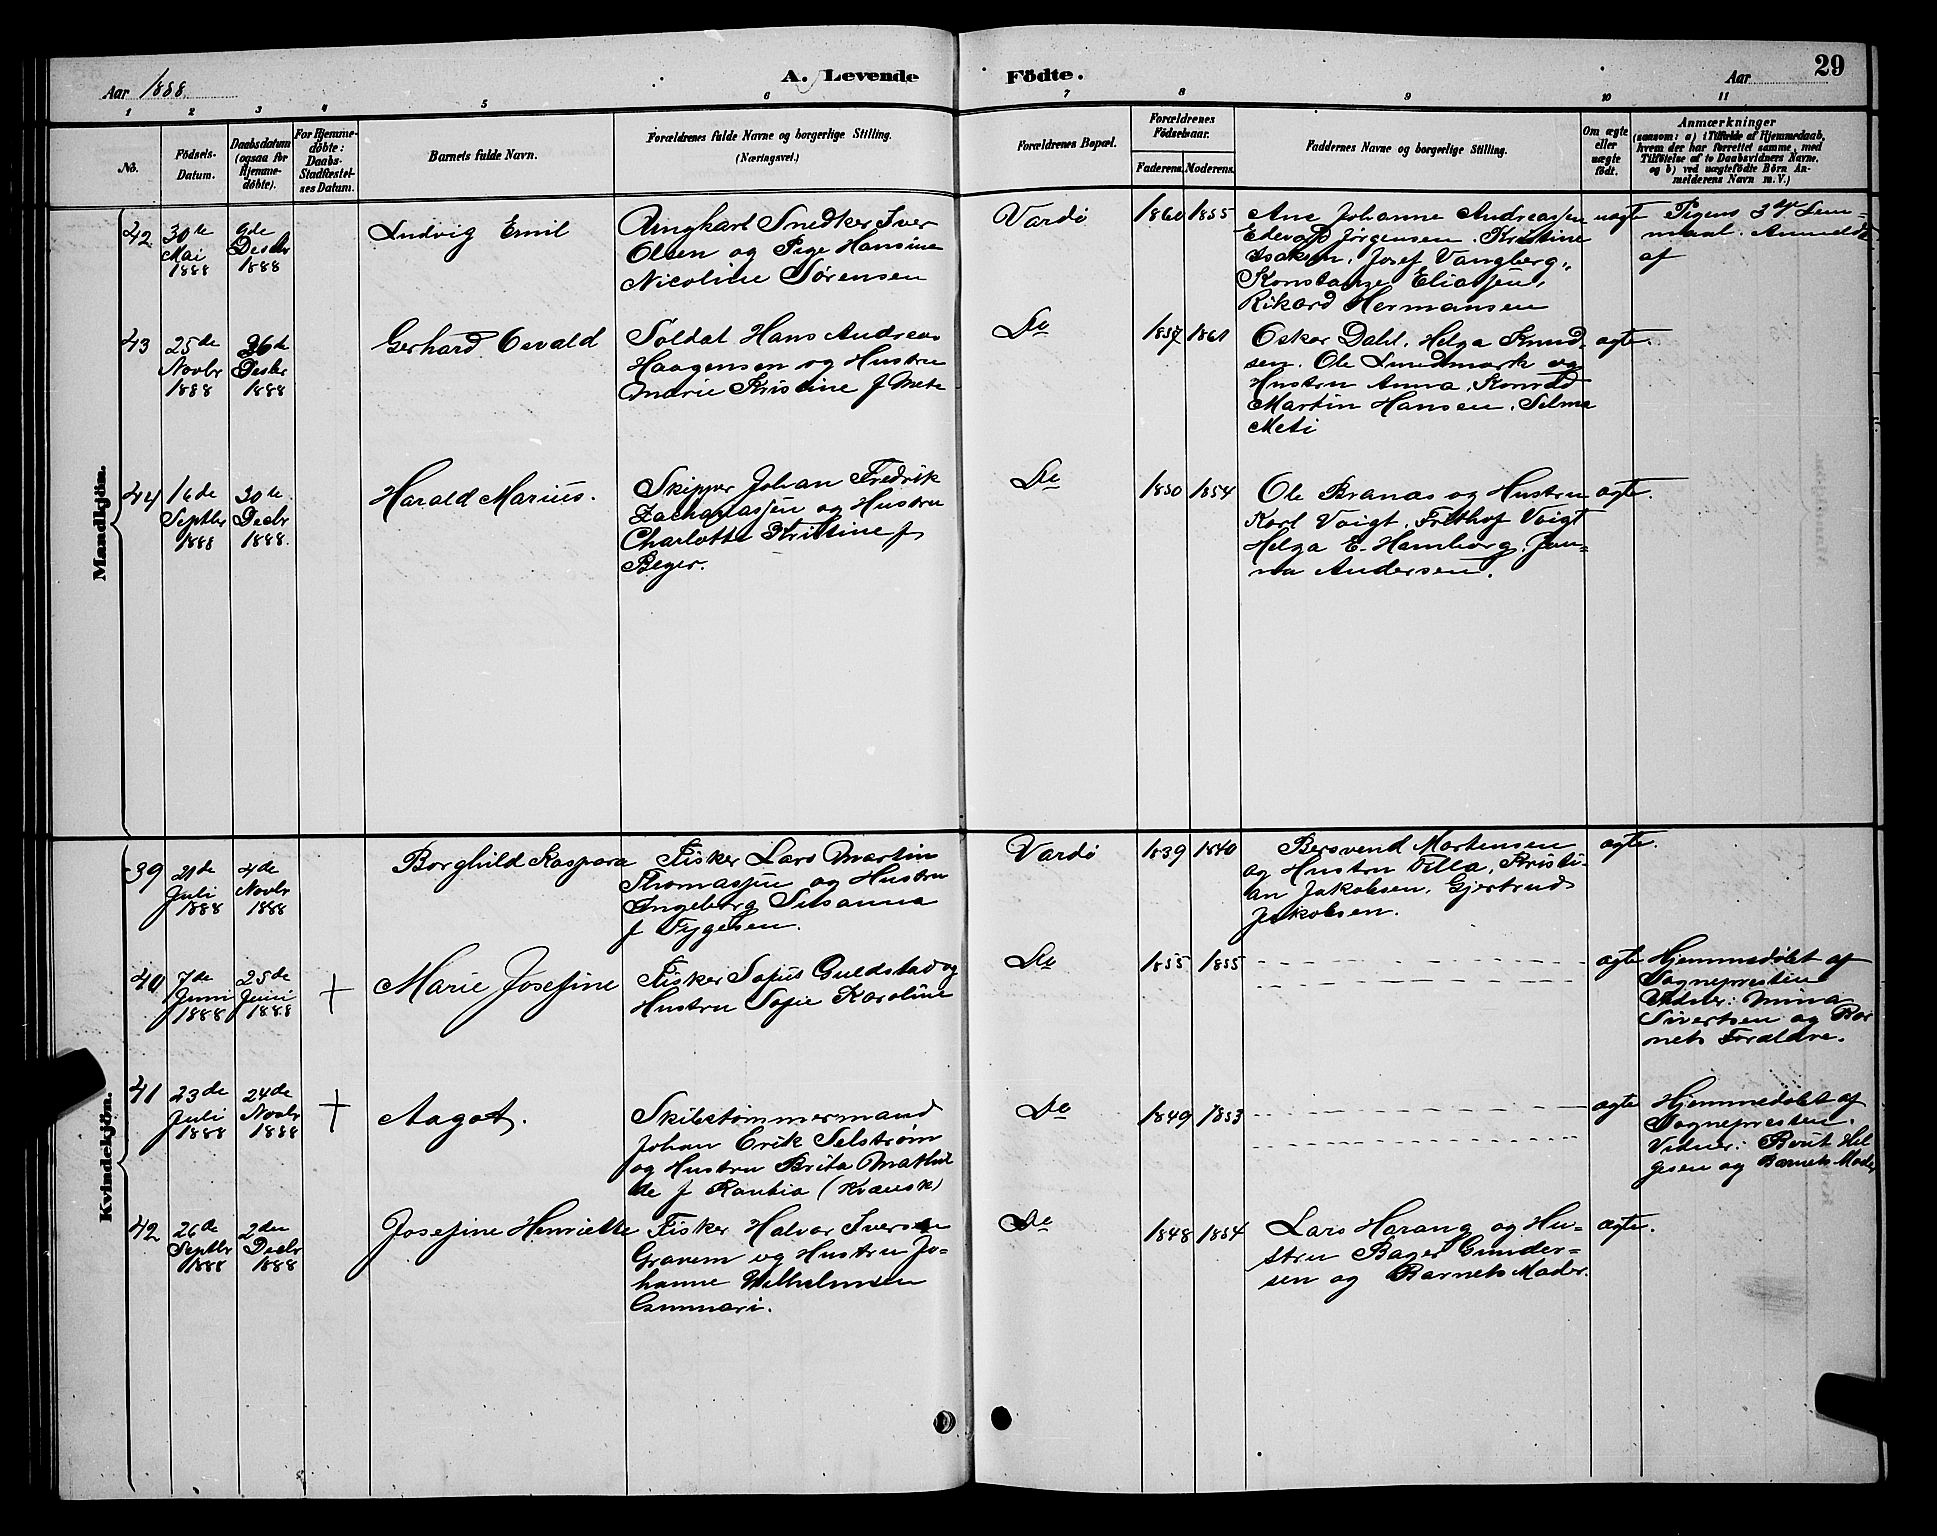 Aar 1888.
A. Levende Födte.
Aar
29
1 2 3 4 5 6 7 8 9 10 11
No.
Födsels-
Datum.
Daabsdatum
(ogsaa for
Hjemme-
döbte).
For Hjemme-
döbte:
Daabs-
Stadfæstel-
ses Datum.
Barnets fulde Navn.
Forældrenes fulde Navne og borgerlige Stilling.
(Næringsvei.)
Forældrenes Bopæl.
Forældrenes
Födselsaar.
Faderens. Moderens.
Faddernes Navne og borgerlige Stilling.
Om ægte
eller
uægte
födt.
Anmærkninger
(saasom: a) i Tilfælde af Hjemmedaab,
hvem der har forrettet samme, med
Tilföielse af to Daabsvidners Navne,
og b) ved uægtefödte Börn An-
melderens Navn m. V.)
Mandkjön.
42
30te
Mai
1888
9de
Desbr
1888
Ludvig Emil
Ungkarl Snedker Iver
Olsen og Pige Hansine
Nicoline Sørensen
Vardø
1860 1855
Ane Johanne Andreassen
Edevard Jørgensen. Kristine
Isaksen. Josef Vangberg,
Konstanse Eliassen,
Rikard Hermansen
uagte
Pigens 3die Leie-
maal. Anmeldt
af
43
25de
Novbr
1888
26de
Desbr
1888
Gerhard Osvald
Soldat Hans Andreas
Haagensen og Hustru
Marie Kristine f Mete
Do
1857 1861
Oskar Dahl. Helga Knud-
sen. Ole Lundmark og
Hustru Anna. Konrad
Martin Hansen. Selma
Meti
agte.
44
16de
Septbr
1888
30te
Decbr
1888.
Harald Marius.
Skipper Johan Fredrik
Zachariassen og Hustru
Charlotte Kristine f
Beger.
Do
1850 1854
Ole Branas og Hustru
Karl Voigt. Frithof Voigt
Helga E. Hamborg. Jan-
na Andersen.
agte.
Kvindekjön.
39
21de
Juli
1888
4de
Novbr
1888
Borghild Kaspara
Fisker Lars Martin
Thomassen og Hustru
Ingeborg Susanna
f Tygesen.
Vardø
1839 1840
Bersvend Mortensen
og Hustru Tilla. Kristi-
an Jakobsen. Gjertrud
Jakobsen.
agte.
40
7de
Juni
1888
25de
Juni
1888
+
Marie Josefine
Fisker Sofus Guldstad og
Hustru Sofie Karoline
Do
1855 1855
agte
Hjemmedøbt af
Sognepresten
Vidner: Mina
Sivertsen og Bar
nets Forældre.
41
23de
Juli
1888
24de
Novbr
1888
+
Aagot.
Skibstømmermand
Johan Erik Selstrøm
og Hustru Brita Mathil
de f Rautio (kvænsk)
Do
1849 1853
agte
Hjemmedøbt af
Sognepresten.
Vidner: Berit Hel
gesen og Barnets Moder
42
26de
Septbr
1888
2den
Decbr
1888
Josefine Henriette
Fisker Halvor Iversen
Gravem og Hustru Jo-
hanne Wilhelmsen
Do
1848 1854
Lars Harang og Hu-
stru Bager Gunder-
sen og Barnets Moder.
ægte.